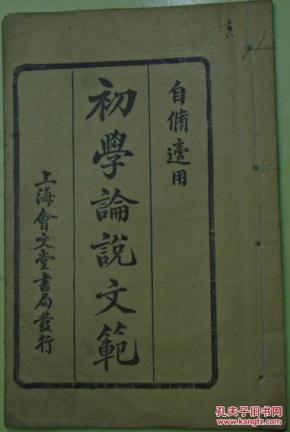 自脩適用
初學論說文範
上海會文堂書局發行
孔夫子旧书网